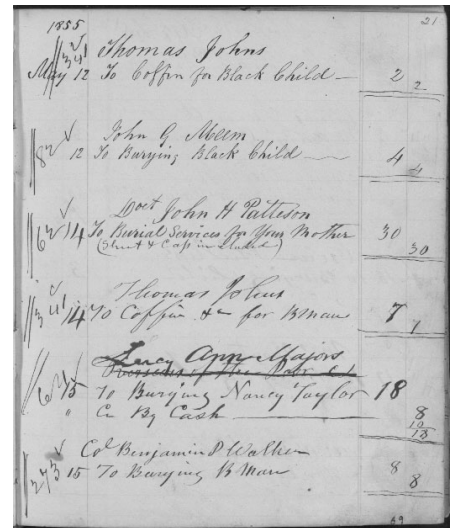 1855
21
341 Thomas Johns
May 12 To Coffin for Black Child — 2
2
John G Meem
82 12 To Burying Black Child — 4
4
Doct John H Patteson
62 14 To Burial Services for Your Mother 30
(Shroud & Cap included) 30
Thomas Johns
341 14 To Coffin &c for B Man 7
7
Lucy Ann Majors
Overseers of the Poor
15 To Burying Nancy Taylor 18
" Cr By Cash — 8
10
18
Col Benjamin P Walker
273 15 To Burying B Man 8
8
69